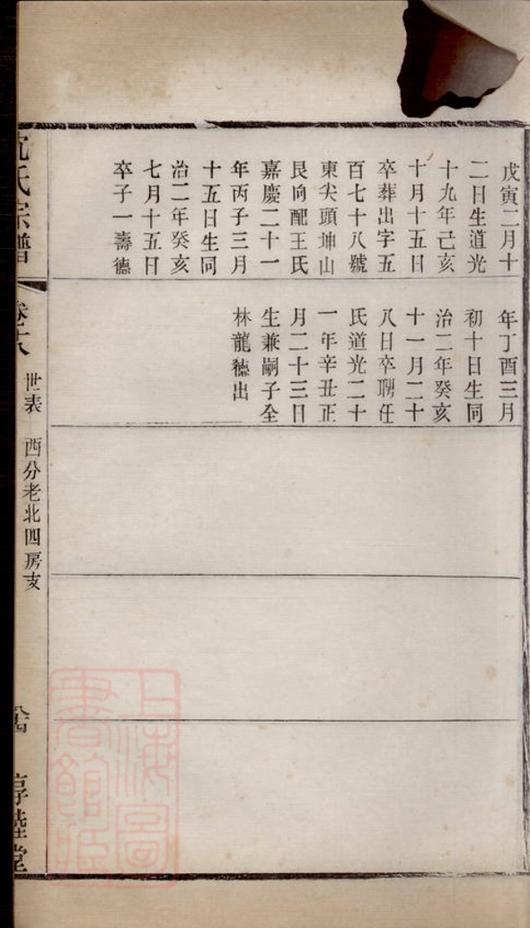 戊寅二月十
二日生道光
十九年己亥
十月十五日
卒葬出字五
百七十八號
東尖頭坤山
艮向配王氏
嘉慶二十一
年丙子三月
十五日生同
治二年癸亥
七月十五日
卒子一壽德
年丁酉三月
初十日生同
治二年癸亥
十一月二十
八日卒聘任
氏道光二十
一年辛丑正
月二十三日
生兼嗣子全
林龍德出
氏宗譜
世表 西分老北四房支
上海圖書館藏